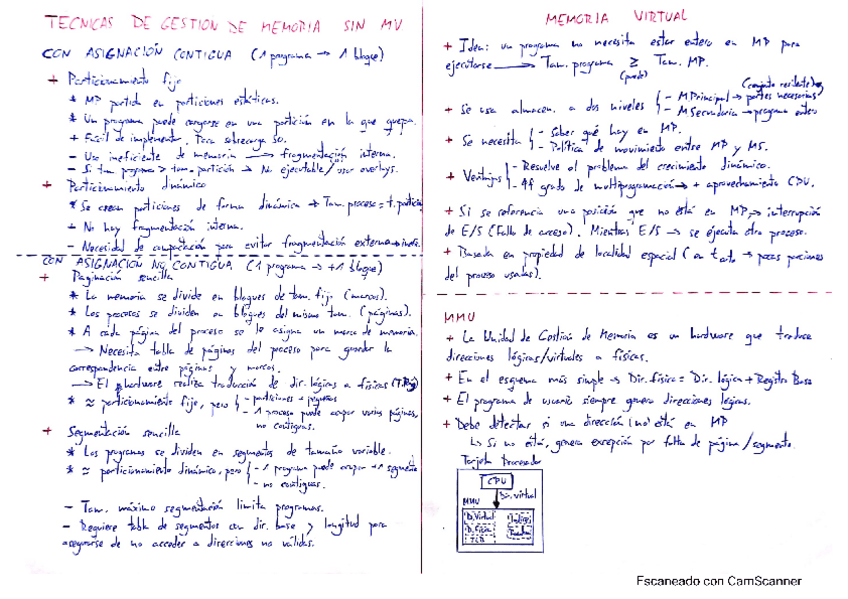 TECNICAS DE GESTION DE MEMORIA SIN MV
CON ASIGNACIÓN CONTIGUA (1 programa → 1 bloque)
+ Particionamiento fijo
* MP partida en particiones estáticas.
* Un programa puede cargarse en una partición en la que quepa.
+ Fácil de implementar. Poca sobrecarga SO.
- Uso ineficiente de memoria → fragmentación interna.
- Si tam. programa > tam. partición → No ejecutable/usar overlays.
+ Particionamiento dinámico
* Se crean particiones de forma dinámica → Tam. proceso = t. partición
+ No hay fragmentación interna.
- Necesidad de compactación para evitar fragmentación externa
CON ASIGNACIÓN NO CONTIGUA (1 programa → +1 bloque)
+ Paginación sencilla
* La memoria se divide en bloques de tam. fijo (marcos).
* Los procesos se dividen en bloques del mismo tam. (páginas).
* A cada página del proceso se le asigna un marco de memoria.
→ Necesita tabla de páginas del proceso para guardar la
correspondencia entre páginas y marcos.
→ El hardware realiza traducción de dir. lógicas a físicas
* ≈ particionamiento fijo, pero { - particiones + pequeñas
- 1 proceso puede ocupar varias páginas,
no contiguas.
+ Segmentación sencilla
* Los programas se dividen en segmentos de tamaño variable.
* ≈ particionamiento dinámico, pero { - 1 programa puede ocupar +1 segmento
- no contiguas.
- Tam. máximo segmentación limita programas.
- Requiere tabla de segmentos con dir. base y longitud para
asegurarse de no acceder a direcciones no válidas.
MEMORIA VIRTUAL
+ Idea: un programa no necesita estar entero en MP para
ejecutarse → Tam. programa ≥ Tam. MP.
(puede)
(conjunto residente)
+ Se usa almacen. a dos niveles { - MPrincipal → partes necesarias
- MSecundaria → programa entero
+ Se necesita { - Saber qué hay en MP.
- Política de movimiento entre MP y MS.
+ Ventajas { - Resuelve el problema del crecimiento dinámico.
- grado de multiprogramación → + aprovechamiento CPU.
+ Si se referencia una posición que no está en MP → interrupción
de E/S (Fallo de acceso). Mientras E/S → se ejecuta otro proceso.
+ Basada en propiedad de localidad espacial (en t corto → pocas porciones
del proceso usadas).
MMU
+ La Unidad de Gestión de Memoria es un hardware que traduce
direcciones lógicas/virtuales a físicas.
+ En el esquema más simple → Dir. física = Dir. lógica + Registro Base
+ El programa de usuario siempre genera direcciones lógicas.
+ Debe detectar si una dirección (no) está en MP
↳ Si no está, genera excepción por falta de página/segmento.
Tarjeta Procesador
CPU
Dir. virtual
MMU
D. Virtual
D. Física
TLB
Escaneado con CamScanner